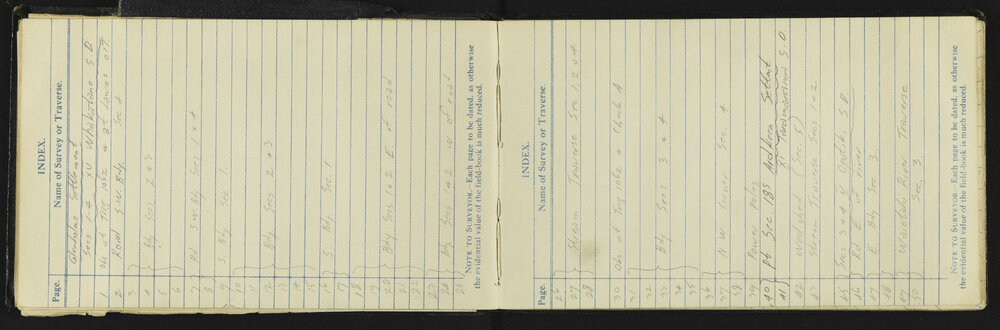 INDEX.
Page. Name of Survey or Traverse.
Glenholme Settlement
Secs 1-4 XV S.D.
1 Obs at Trig
2 Road S.W. Bdy. Sec 4
3
4 Bdy Secs 2 & 3
5
6
7 Rd S.W. Bdy Secs 1 & 4
8
9 Bdy Sec 1
10
11
12 Bdy Secs 2 & 3
13
14
15
16 S Bdy Sec 1
17
18
19
20 Bdy Secs 1 & 2 E. of road
21
22
23
24 Bdy Secs 1 & 2 W. of road
25
NOTE TO SURVEYOR.—Each page to be dated, as otherwise
the evidential value of the field-book is much reduced.
INDEX.
Page. Name of Survey or Traverse.
26
27 Stream Traverse Secs 1, 2 & 4
28
30 Obs at Trig & Creek A
31
32
33 Bdy Secs 3 & 4
34
35
36
37 N W Corner Sec 4
38
39 Power Poles
40 Pt Sec 185 Settmt
41 XI S D
42
43 Stream Traverse Secs 1 & 2
45 Secs 3 & 4 V S D
46 Rd E of river
47 E. Bdy Sec 3
48
49 River Traverse
50 Sec. 3
NOTE TO SURVEYOR.—Each page to be dated, as otherwise
the evidential value of the field-book is much reduced.